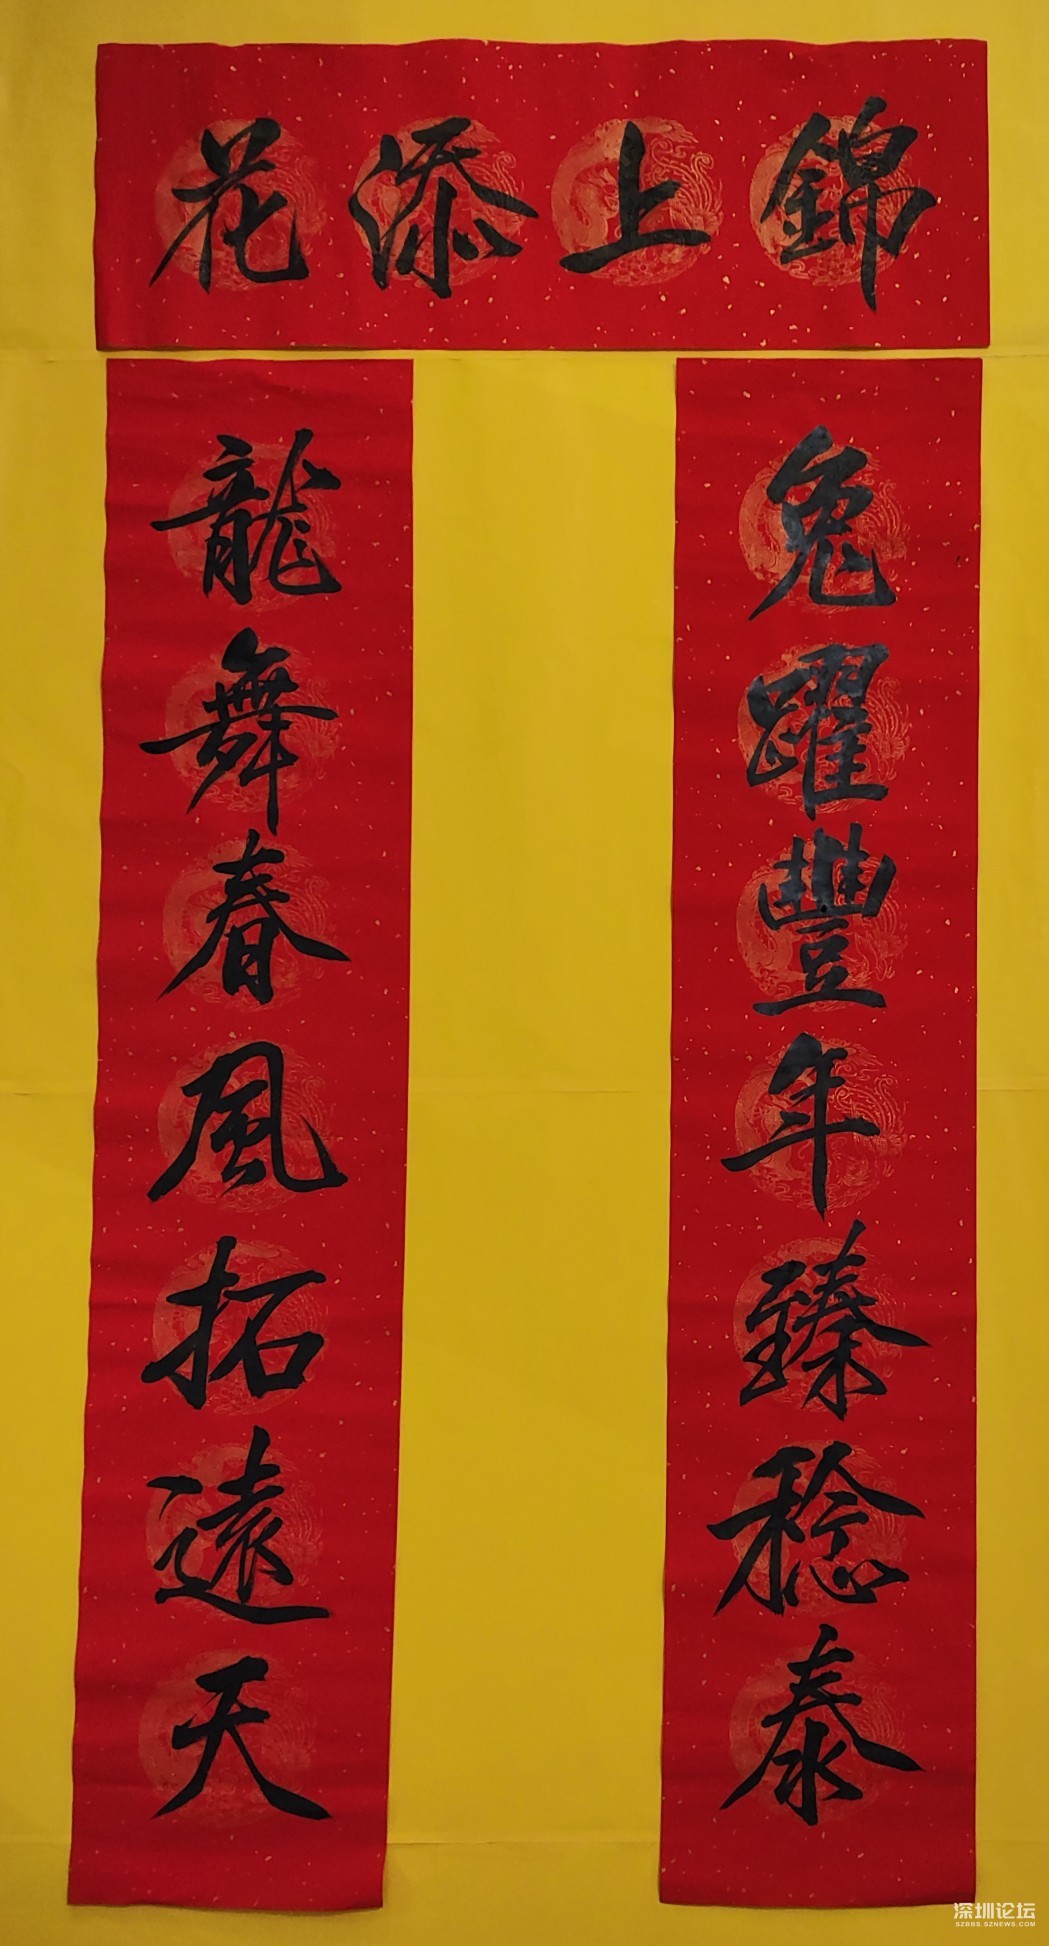 錦上添花
兔躍豐年臻稔泰
龍舞春風拓遠天
深圳论坛
SZBBS.SZNEWS.COM